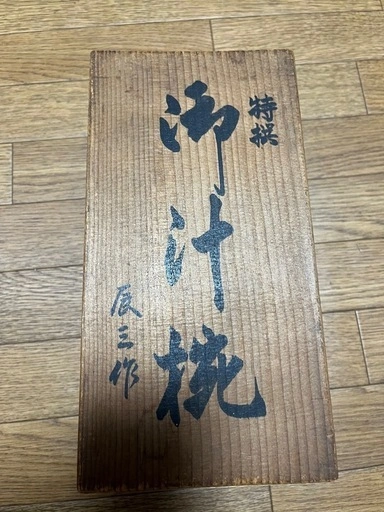 特撰
御汁椀
辰三作